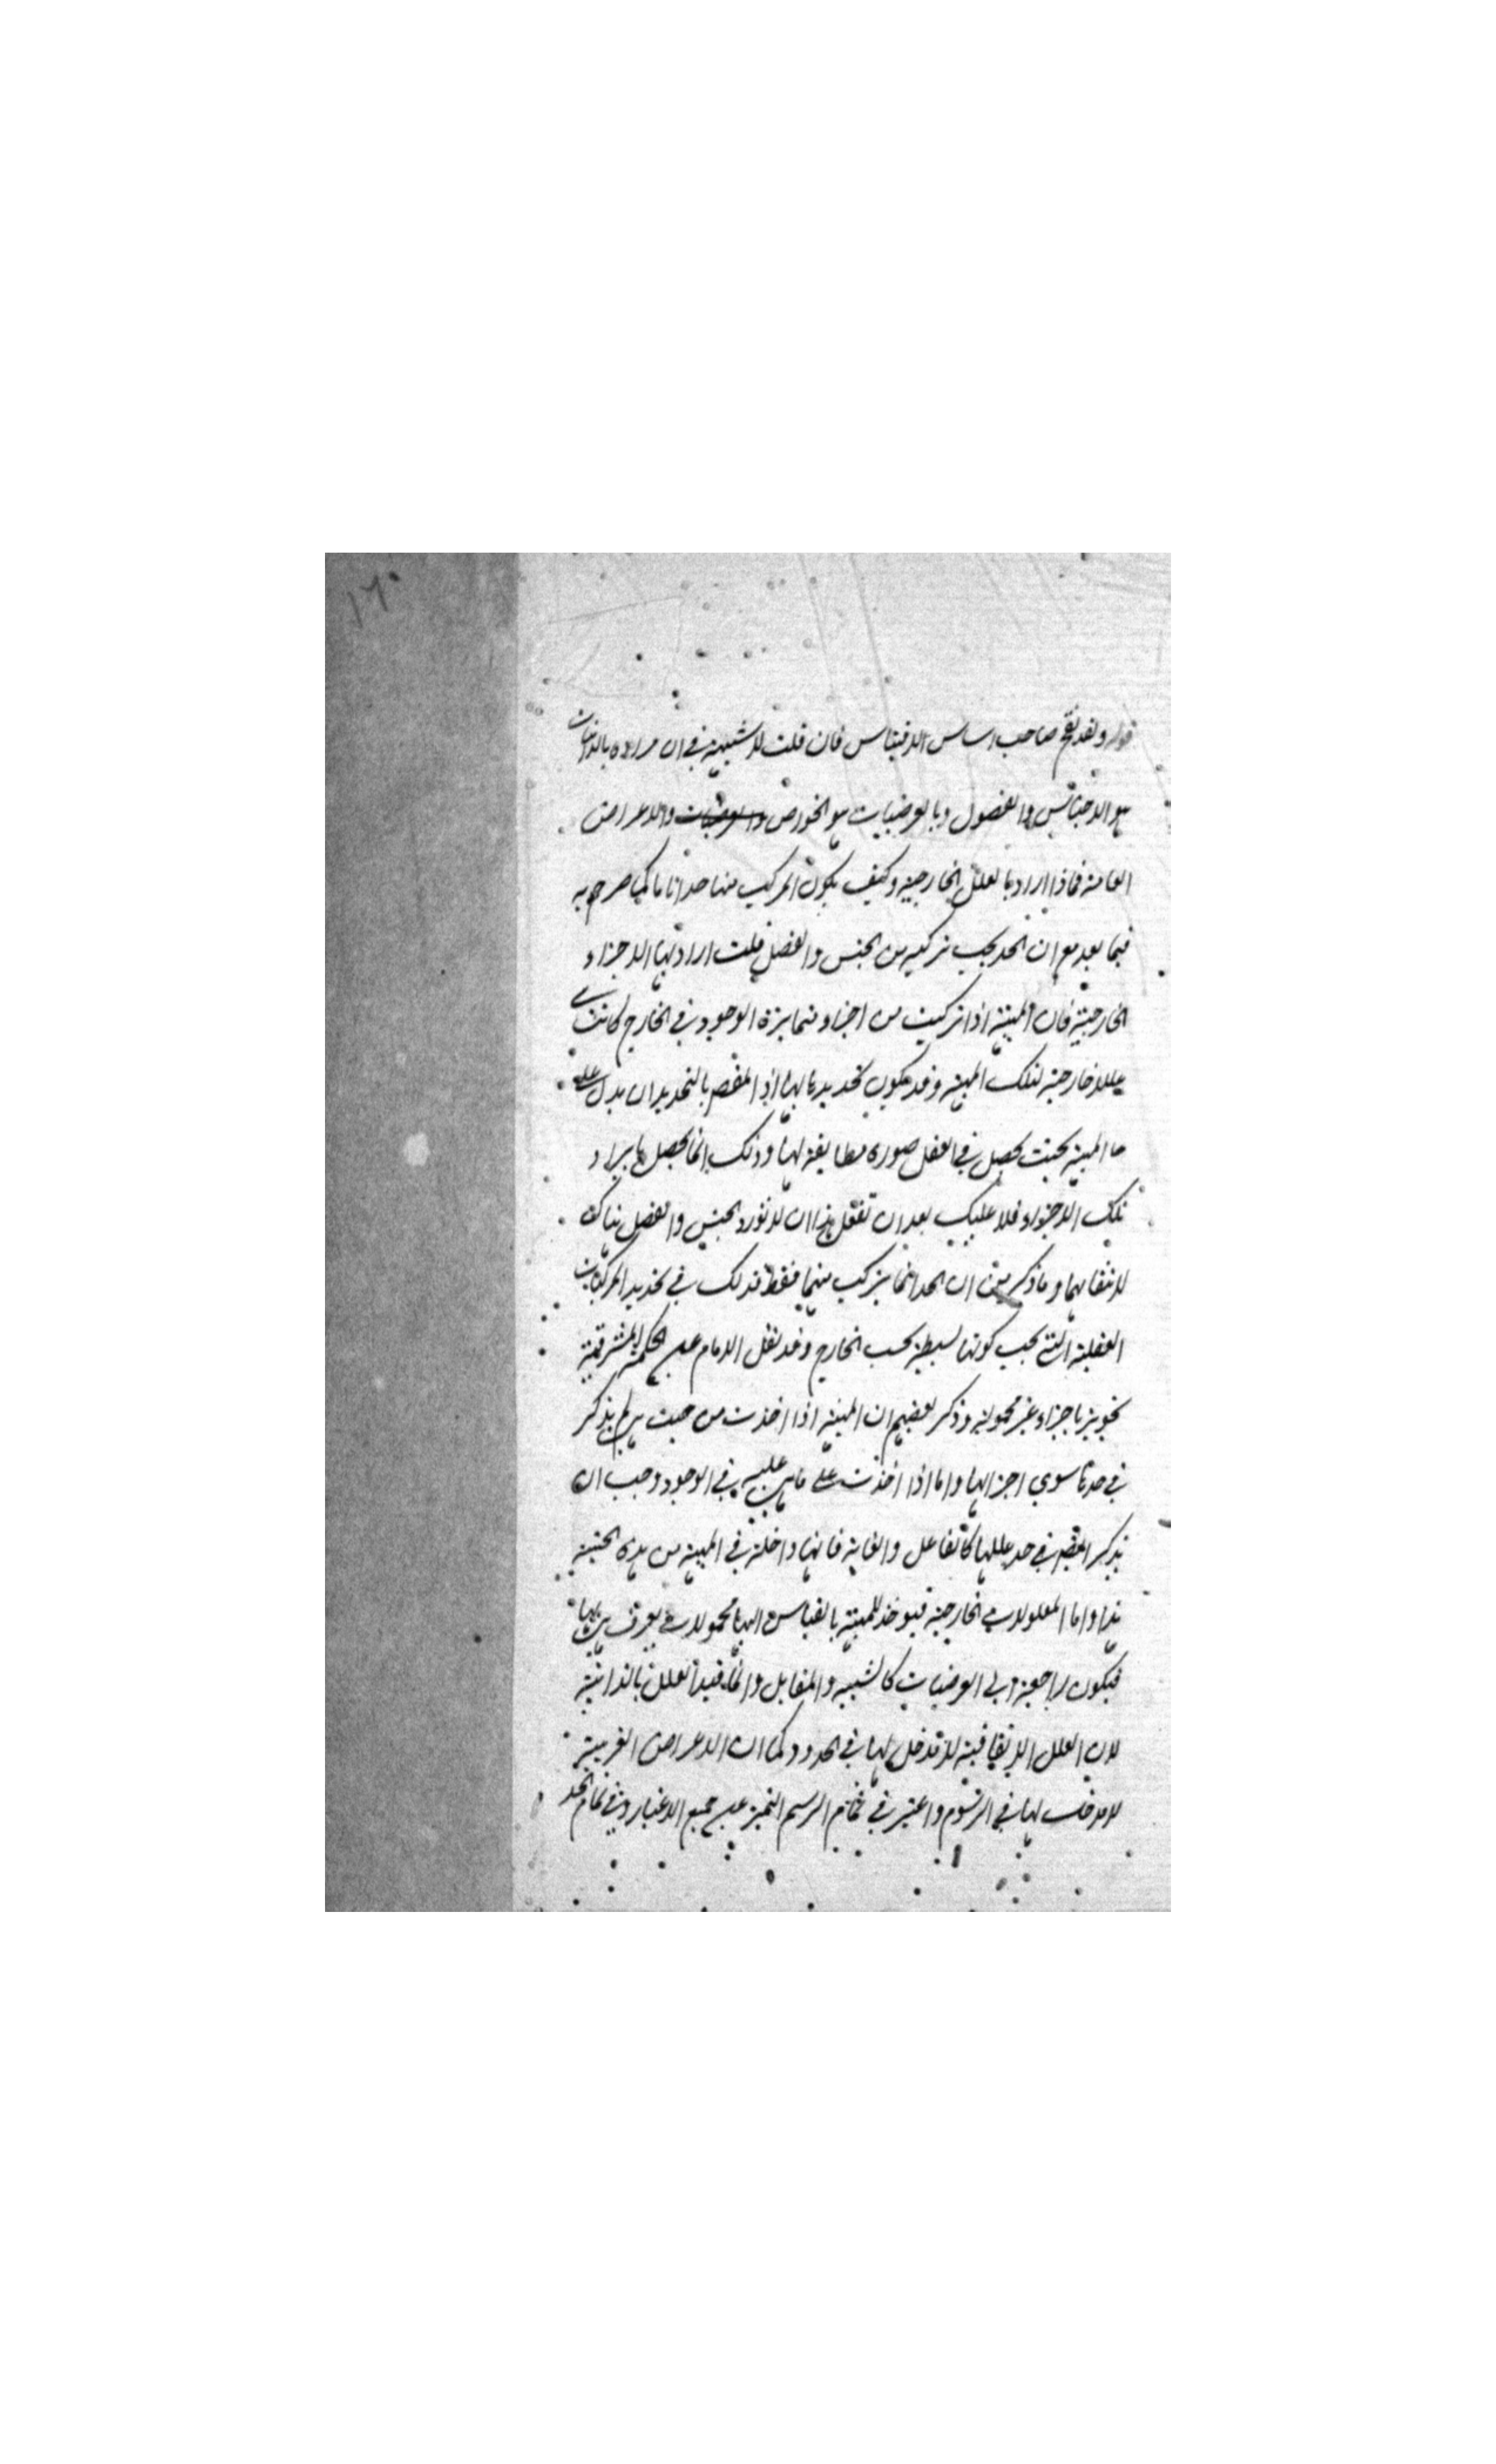 ١٦٠
قوله ولقد نقح صاحب اساس الاقتباس فان قلت لا شبهة في ان مراده بالذاتيات
هو الاجناس والفصول وبالعرضيات هو الخواص والاعراض
العامة فماذا اراد بالعلل الخارجية وكيف يكون المركب منها حدا تاما كما صرح به
فيما بعد مع ان الحد يجب تركبه من الجنس والفصل قلت اراد بها الاجزاء
الخارجية فان المهية اذا تركبت من اجزاء متمايزة الوجود في الخارج كانت
عللا خارجية لتلك المهية وقد يكون تحديدها بها اذ المقصود بالتحديد ان يدل على
ما المهية بحيث يحصل في العقل صورة مطابقة لها وذلك انما يحصل بايراد
تلك الاجزاء فلا عليك بعد ان تفعل هذا ان لا تورد الجنس والفصل هناك
لانتفائهما وما ذكر من ان الحد انما يتركب منهما فقط فذلك في تحديد المركبات
العقلية التي يجب كونها بسيطة بحسب الخارج وقد نقل الامام عن الحكمة المشرقية
تجويز باجزاء غير محمولة وذكر بعضهم ان المهية اذا اخذت من حيث هي لم يذكر
في حدها سوى اجزائها واما اذا اخذت على ما هي عليه في الوجود وجب ان
يذكر في حد عللها كالفاعل والغاية فانها داخلة في المهية من هذه الحيثية
هذا واما المعلولات الخارجية فيوخذ للمهية بالقياس اليها محمولات يعرف بها
فيكون راجعة الى العرضيات كالشبيه والمقابل وانما قيد العلل بالذاتية
لان العلل الاتفاقية لا تدخل لها في الحدود كما ان الاعراض الغريبة
لا مدخل لها في الرسوم واعتبر في الرسم التميز عن جميع الاغيار وفي تمام الحد